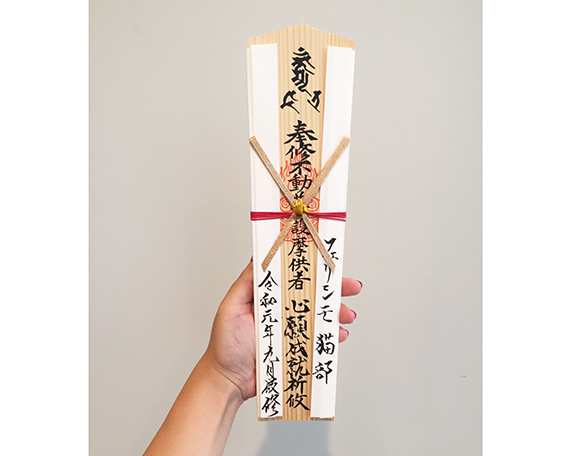 フェリシモ 猫部
奉修不動護摩供者 心願成就祈攸
令和元年九月厳修